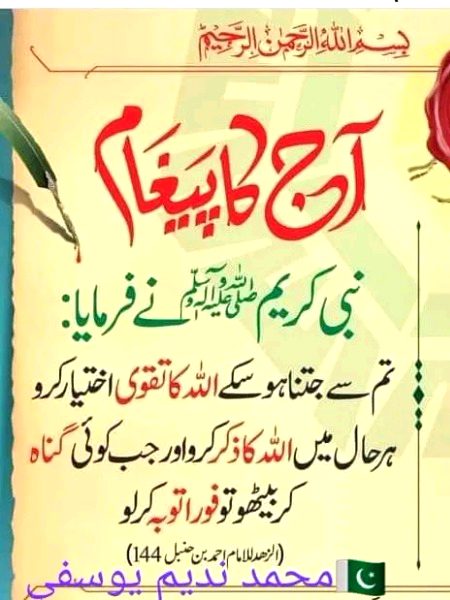 بِسْمِ اللّٰهِ الرَّحْمٰنِ الرَّحِيْمِ
آج کا پَیغَام
نبی کریم ﷺ نے فرمایا:
تم سے جتنا ہو سکے اللہ کا تقویٰ اختیار کرو
ہر حال میں اللہ کا ذکر کرو اور جب کوئی گناہ
کر بیٹھو تو فوراً توبہ کر لو
(الزھد للامام احمد بن حنبل 144)
محمد ندیم یوسفی